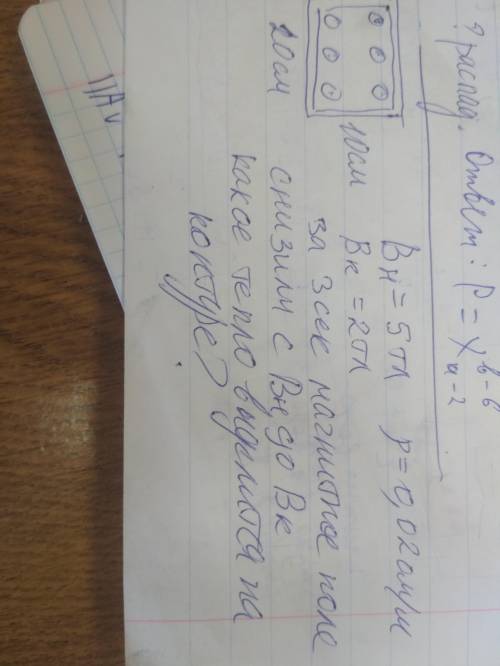 ? распад. Ответ: P = X b-6 a-2
20см
10см
Bн = 5 тл p = 0,02 ом/м
Bк = 2 тл
за 3 сек магнитное поле
снизили с Bн до Bк
какое тепло выделится на
контуре?